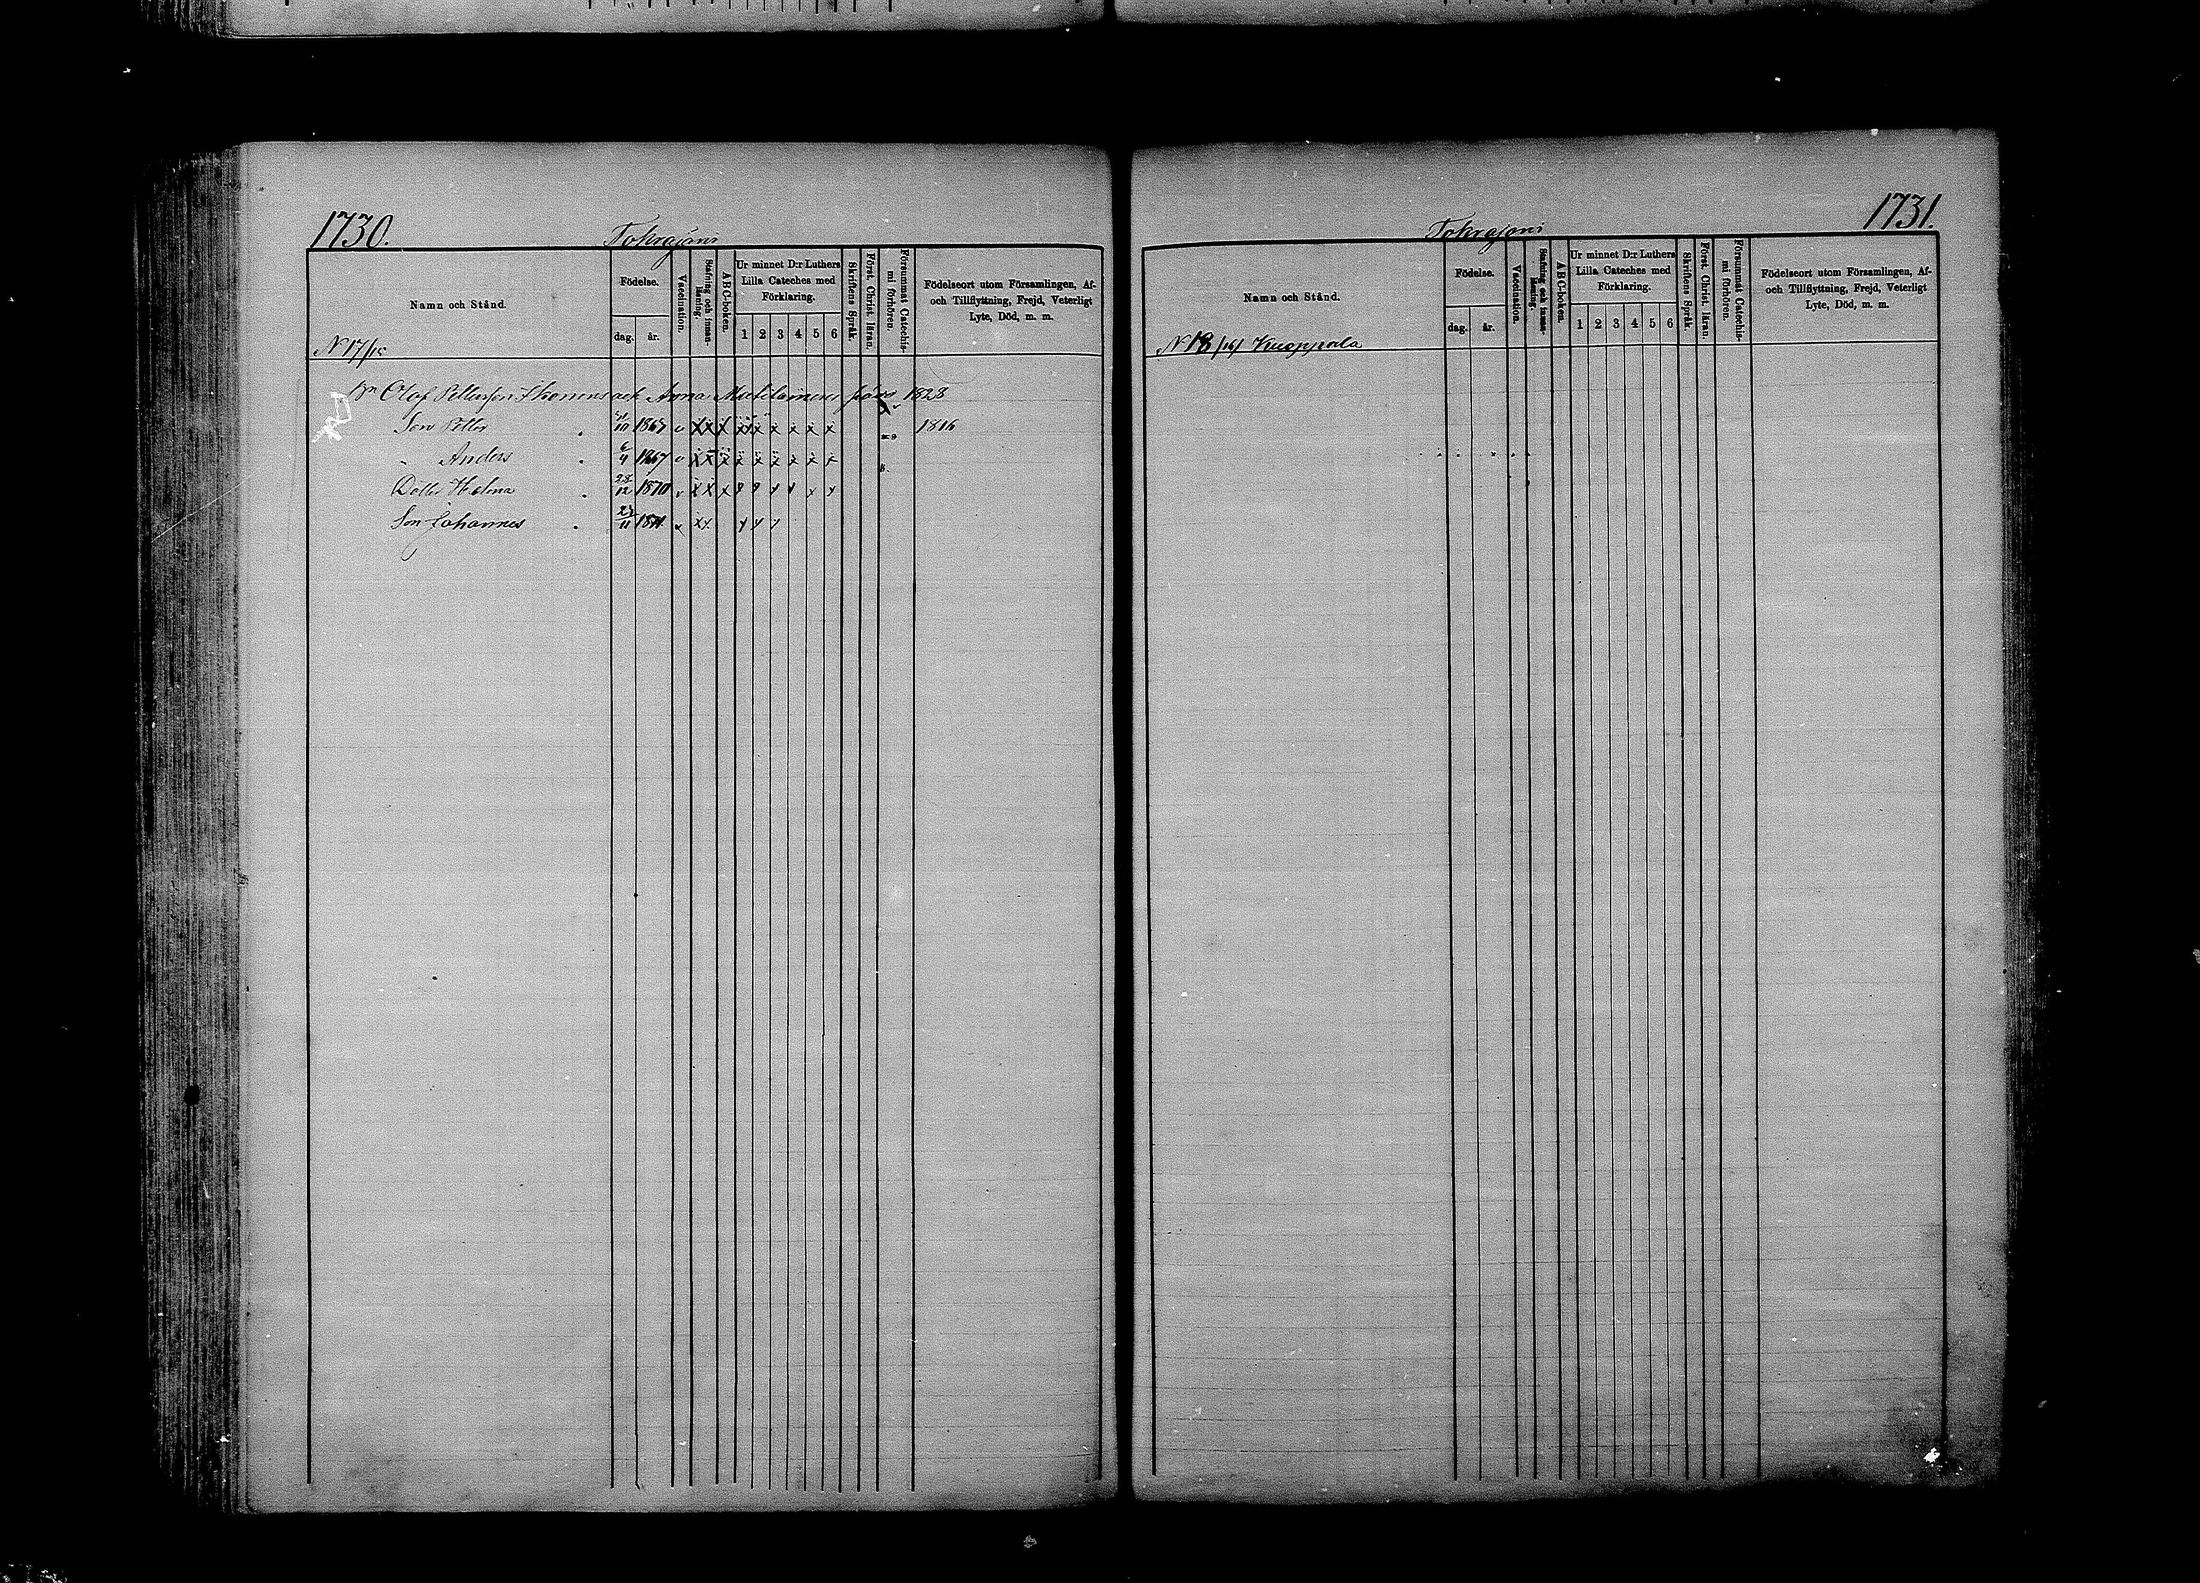 1730.
Tohrajäni
Namn och Stånd.
Födelse.
dag. år.
Vaccination.
Stafning och innan-läsning.
ABC-boken.
Ur minnet D:r Luthers
Lilla Cateches med
Förklaring.
1 2 3 4 5 6
Skriftens Språk.
Först. Christ. läran.
Försummat Catechis-
mi förhören.
Födelseort utom Församlingen, Af-
och Tillflyttning, Frejd, Veterligt
Lyte, Död, m. m.
N 17/15
Bn Olaf Pettersson och Anna 1828
Son Petter 1867 v x x x x x x x x x 1816
" Anders 6/4 1867 v x x x x x x x x x
Dotter Helena 28/12 1870 v x x x
Son Johannes 23/11
1731.
Tohrajäni
Namn och Stånd.
Födelse.
dag. år.
Vaccination.
Stafning och innan-läsning.
ABC-boken.
Ur minnet D:r Luthers
Lilla Cateches med
Förklaring.
1 2 3 4 5 6
Skriftens Språk.
Först. Christ. läran.
Försummat Catechis-
mi förhören.
Födelseort utom Församlingen, Af-
och Tillflyttning, Frejd, Veterligt
Lyte, Död, m. m.
N 18/16/ Knuppala